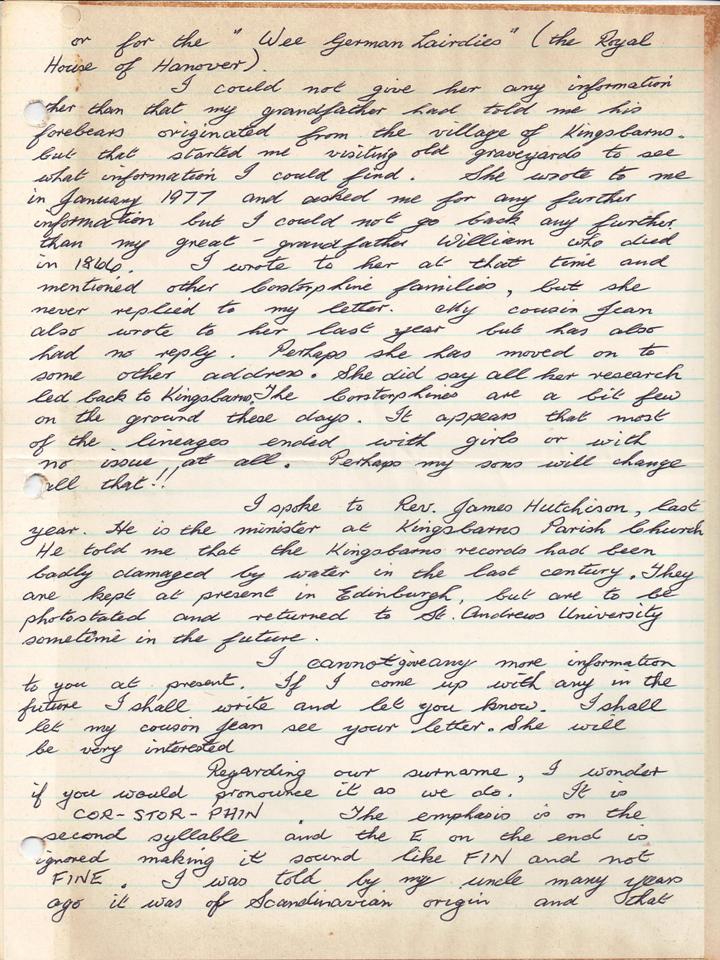 or for the " Wee German Lairdies" (the Royal
House of Hanover).
I could not give her any information
ther than that my grandfather had told me his
forebears originated from the village of Kingsbarns.
but that started me visiting old graveyards to see
what information I could find. She wrote to me
in January 1977 and asked me for any further
information but I could not go back any further
than my great - grandfather William who died
in 1866. I wrote to her at that time and
mentioned other Corstorphine families, but she
never replied to my letter. My cousin Jean
also wrote to her last year but has also
had no reply. Perhaps she has moved on to
some other address. She did say all her research
led back to Kingsbarns. The Corstorphines are a bit few
on the ground these days. It appears that most
of the lineages ended with girls or with
no issue at all. Perhaps my sons will change
all that!!
I spoke to Rev. James Hutchison, last
year. He is the minister at Kingsbarns Parish Church
He told me that the Kingsbarns records had been
badly damaged by water in the last century. They
are kept at present in Edinburgh, but are to be
photostated and returned to St. Andrews University
sometime in the future.
I cannot give any more information
to you at present. If I come up with any in the
future I shall write and let you know. I shall
let my cousin Jean see your letter. She will
be very interested
Regarding our surname, I wonder
if you would pronounce it as we do. It is
COR-STOR-PHIN. The emphasis is on the
second syllable and the E on the end is
ignored making it sound like FIN and not
FINE. I was told by my uncle many years
ago it was of Scandinavian origin and that